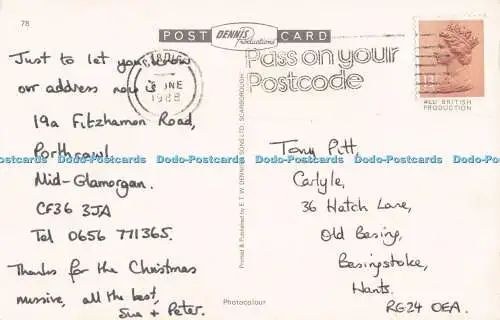 78
POST DENNIS Productions CARD
Just to let you know
our address now is
19a Fitzhamon Road,
Porthcawl
Mid-Glamorgan.
CF36 3JA
Tel 0656 771365.
Thanks for the Christmas
missive, all the best,
Sue + Peter.
1988
Pass on your
Postcode
ALL BRITISH
PRODUCTION
Printed & Published by E.T.W. DENNIS & SONS LTD., SCARBOROUGH
Photocolour
Tony Pitt,
Carlyle,
36 Hatch Lane,
Old Basing,
Basingstoke,
Hants.
RG24 OEA.
Dodo-Postcards Dodo-Postcards Dodo-Postcards Dodo-Postcards Dodo-Postcards